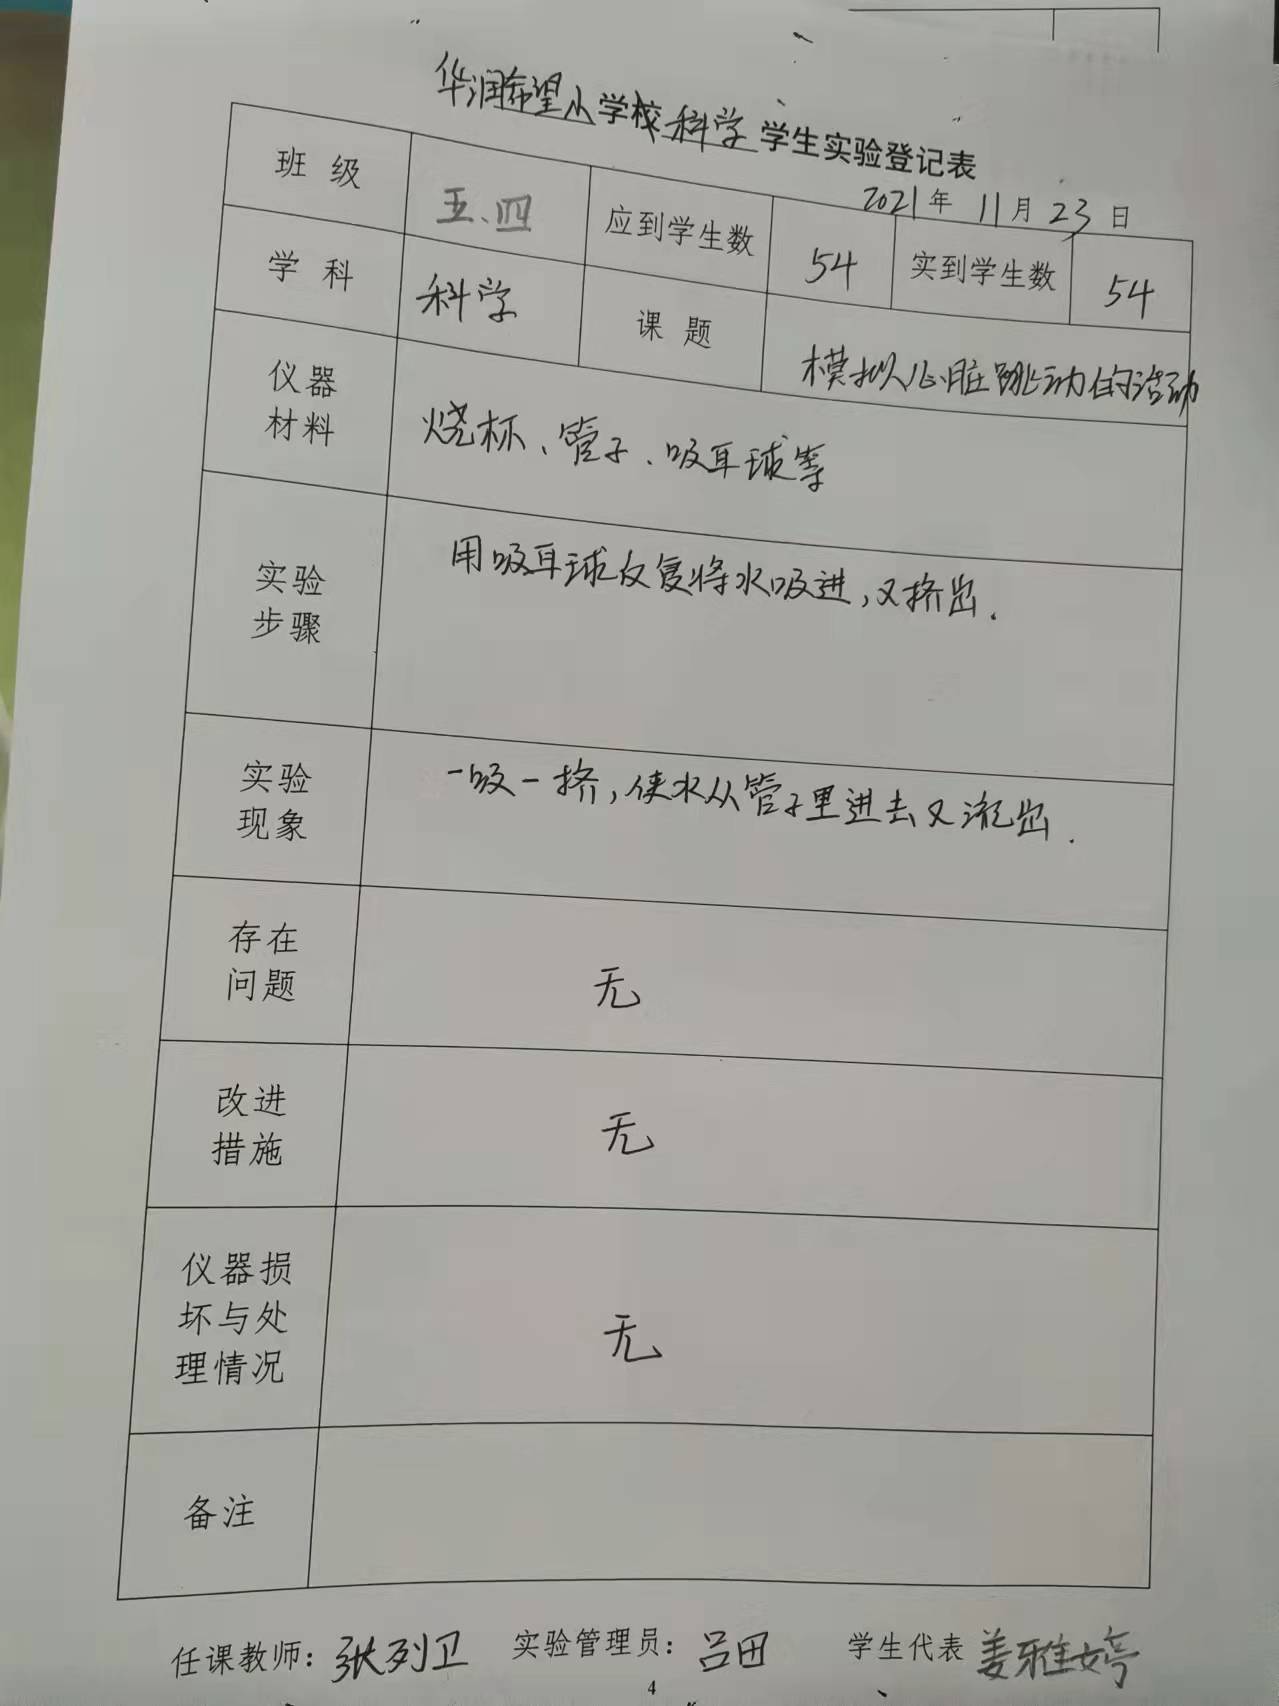 华润希望小学校科学学生实验登记表
2021年 11月 23日
班级 五、四 应到学生数 54 实到学生数 54
学科 科学 课题 模拟心脏跳动的活动
仪器
材料
烧杯、管子、吸耳球等
实验
步骤
用吸耳球反复将水吸进,又挤出.
实验
现象
一吸一挤,使水从管子里进去又流出.
存在
问题
无
改进
措施
无
仪器损
坏与处
理情况
无
备注
任课教师: 张列卫 实验管理员: 吕田 学生代表 姜雅婷
4